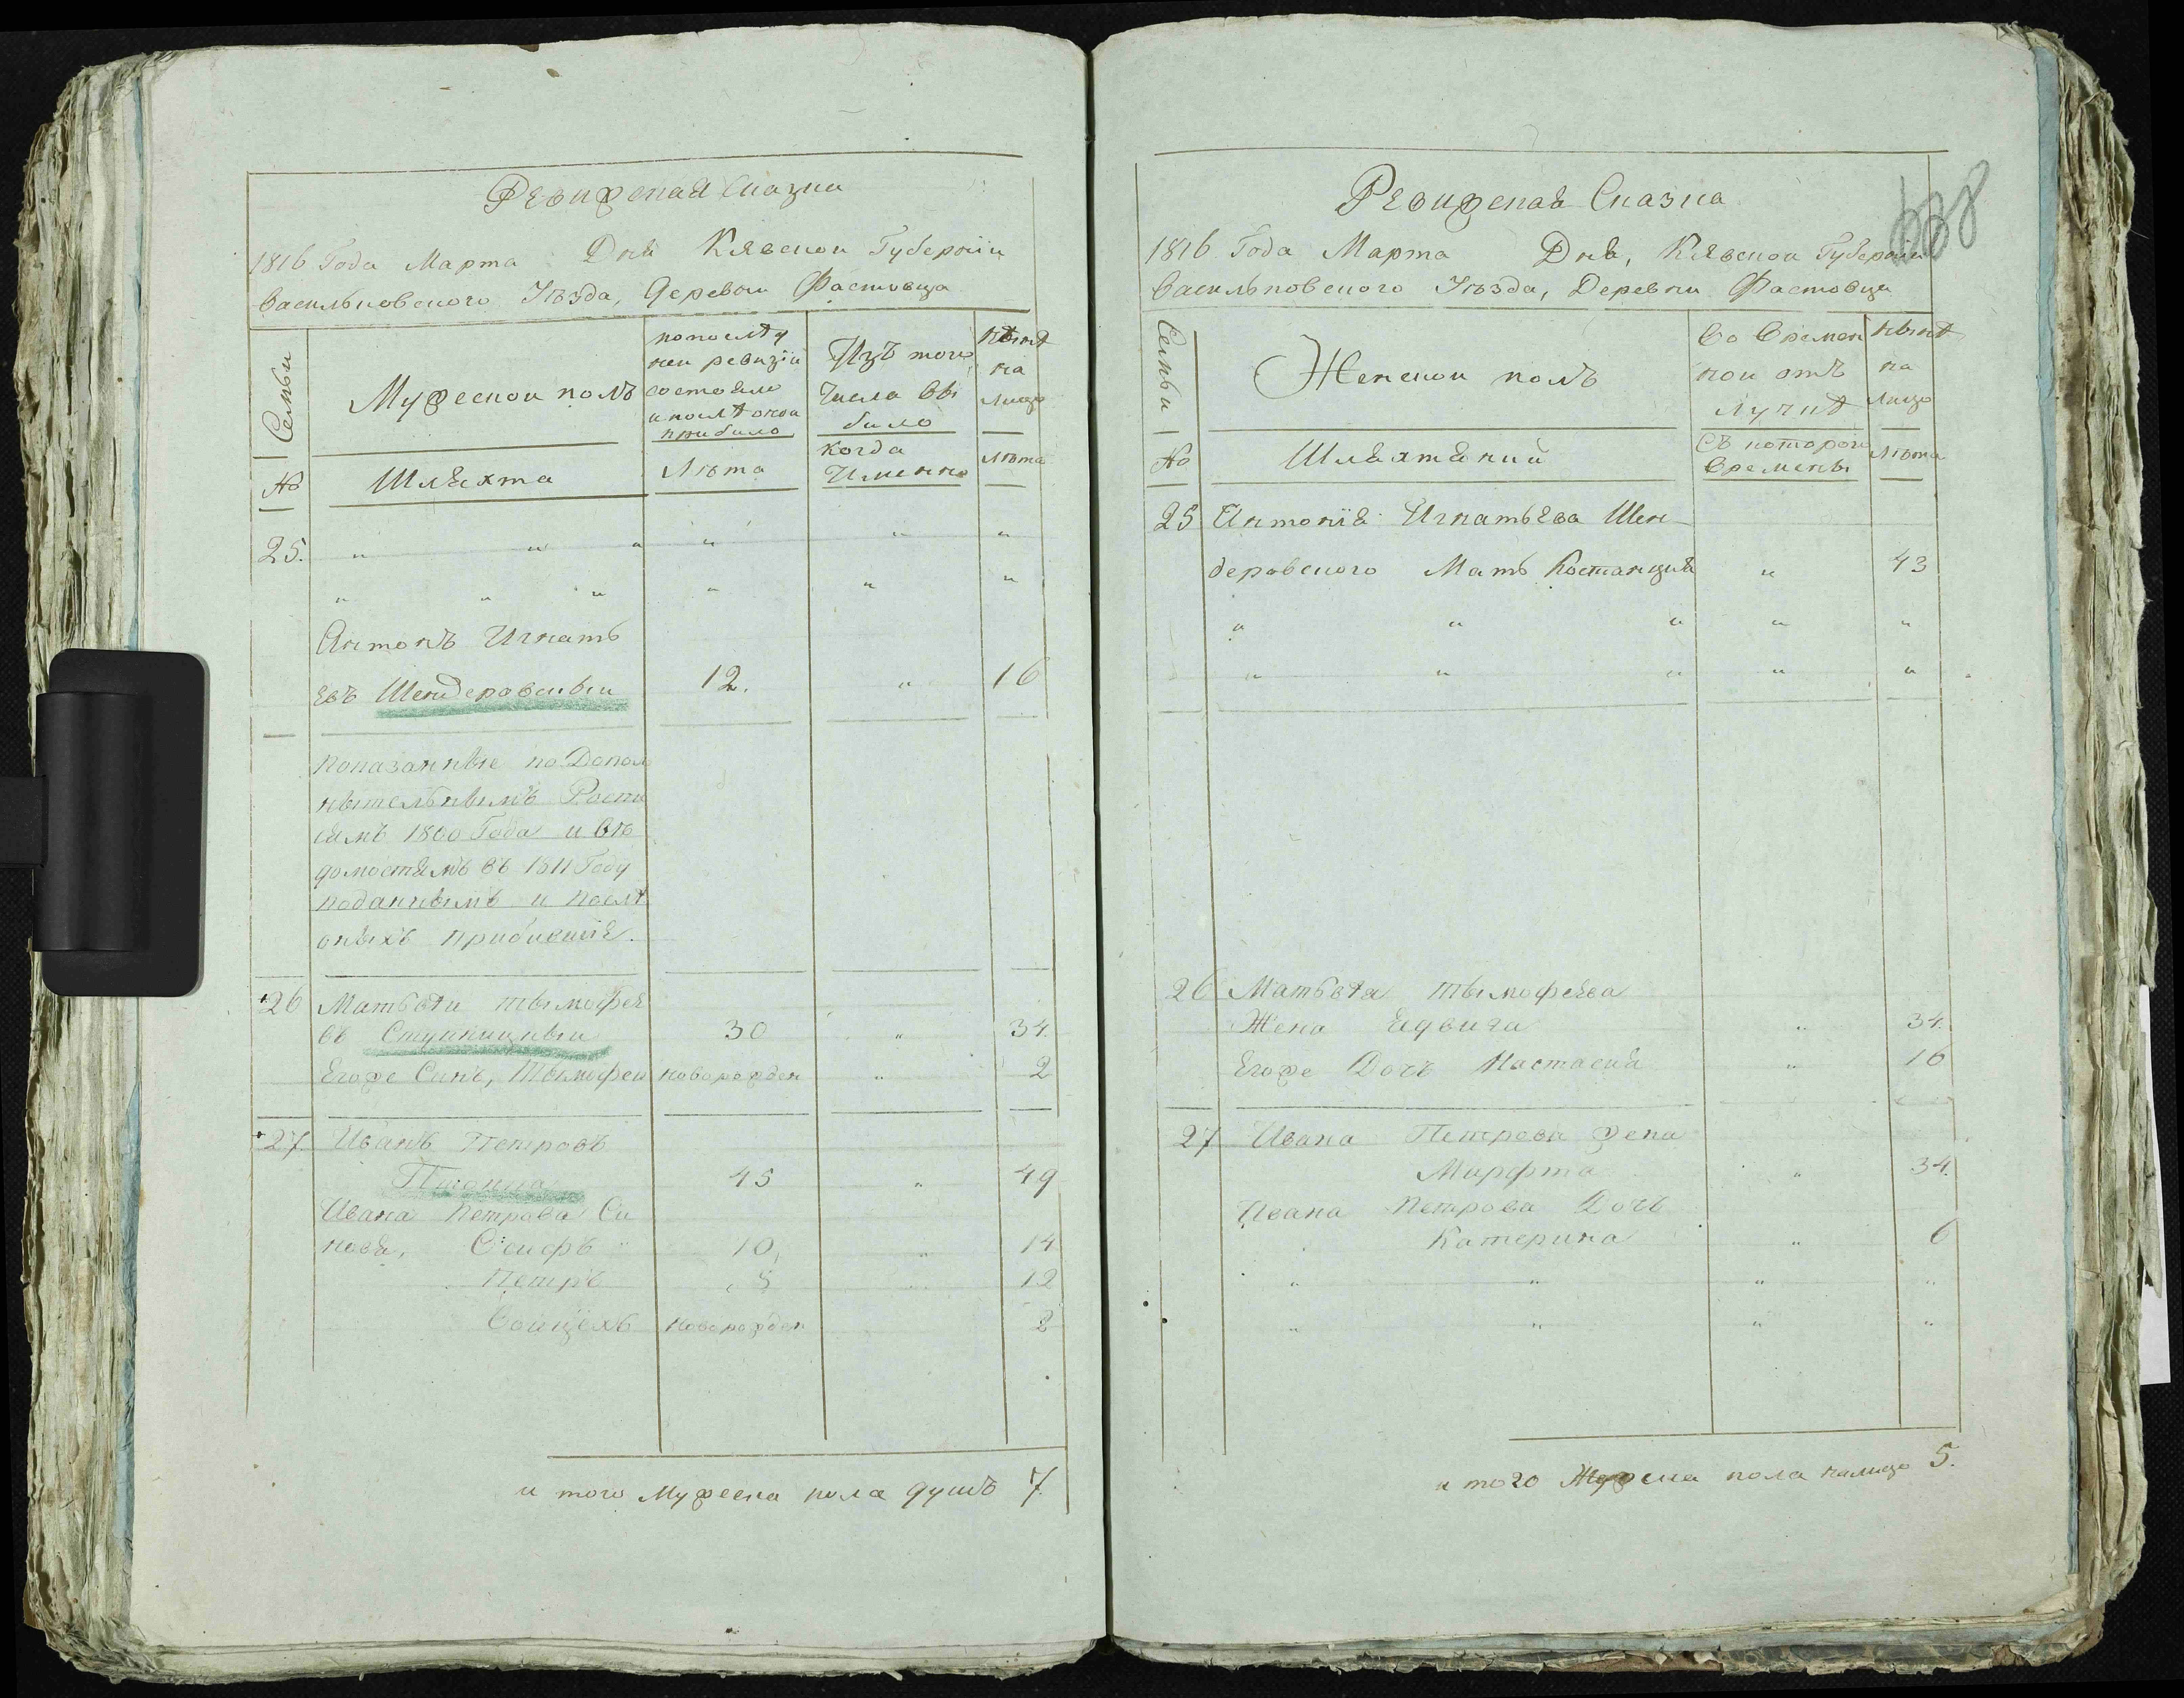 Ревизская Сказка
1816 Года Марта Дня Киевской Губернии
Васильковского Уѣзда, Деревни Фастовца
Семьи
Мужескои полъ
по послѣд
неи ревизіи
состояло
и послѣ онои
прибило
Изъ того
Числа вы
било
нынѣ
на
Лицо
№
Шляхта
Лѣта
когда
Именно
Лѣта
25. " " " " " "
" " " " " "
Антонъ Игнать
евъ Шендеровскыи 12. " 16
показанные по Допол
нытельнымъ Роспи
сямъ 1800 Года и вѣ
домостямъ въ 1811 Году
поданнымъ и послѣ
оныхъ прибившіе.
26 Матьвѣи тымофее
въ Ступницкыи 30 " 34.
Егоже Синъ, Тымофеи новорожден " 2
27. Иванъ Петровъ
45 " 49
Ивана Петрова Си
новя, Осифъ " 10, " 14
Петръ 8 " 12
Воицехъ новорожден 2
и того Мужеска пола душъ 7.
Ревизская Сказка
1816 Года Марта Дня, Киевскои Губерніи
Васильковского Уѣзда, Деревни Фастовци
Семьи
Женскои полъ
Во Времен
нои отъ
лучкѣ
нынѣ
на
Лицо
№
Шляхтянки
Съ которои
Времены
Лѣта
25 Антонія Игнатьева Шен
деровского Мать Костанция " 43
" " " " "
" " " " "
26 Матьвѣя тымофеева
Жена Ядвига " 34.
Егоже Дочъ Настасия " 16
27 Ивана Петрова жена
Марфта " 34.
Ивана Петрова Дочъ
Катерина " 6
" " " "
" " " "
и того Женска пола налицо 5.